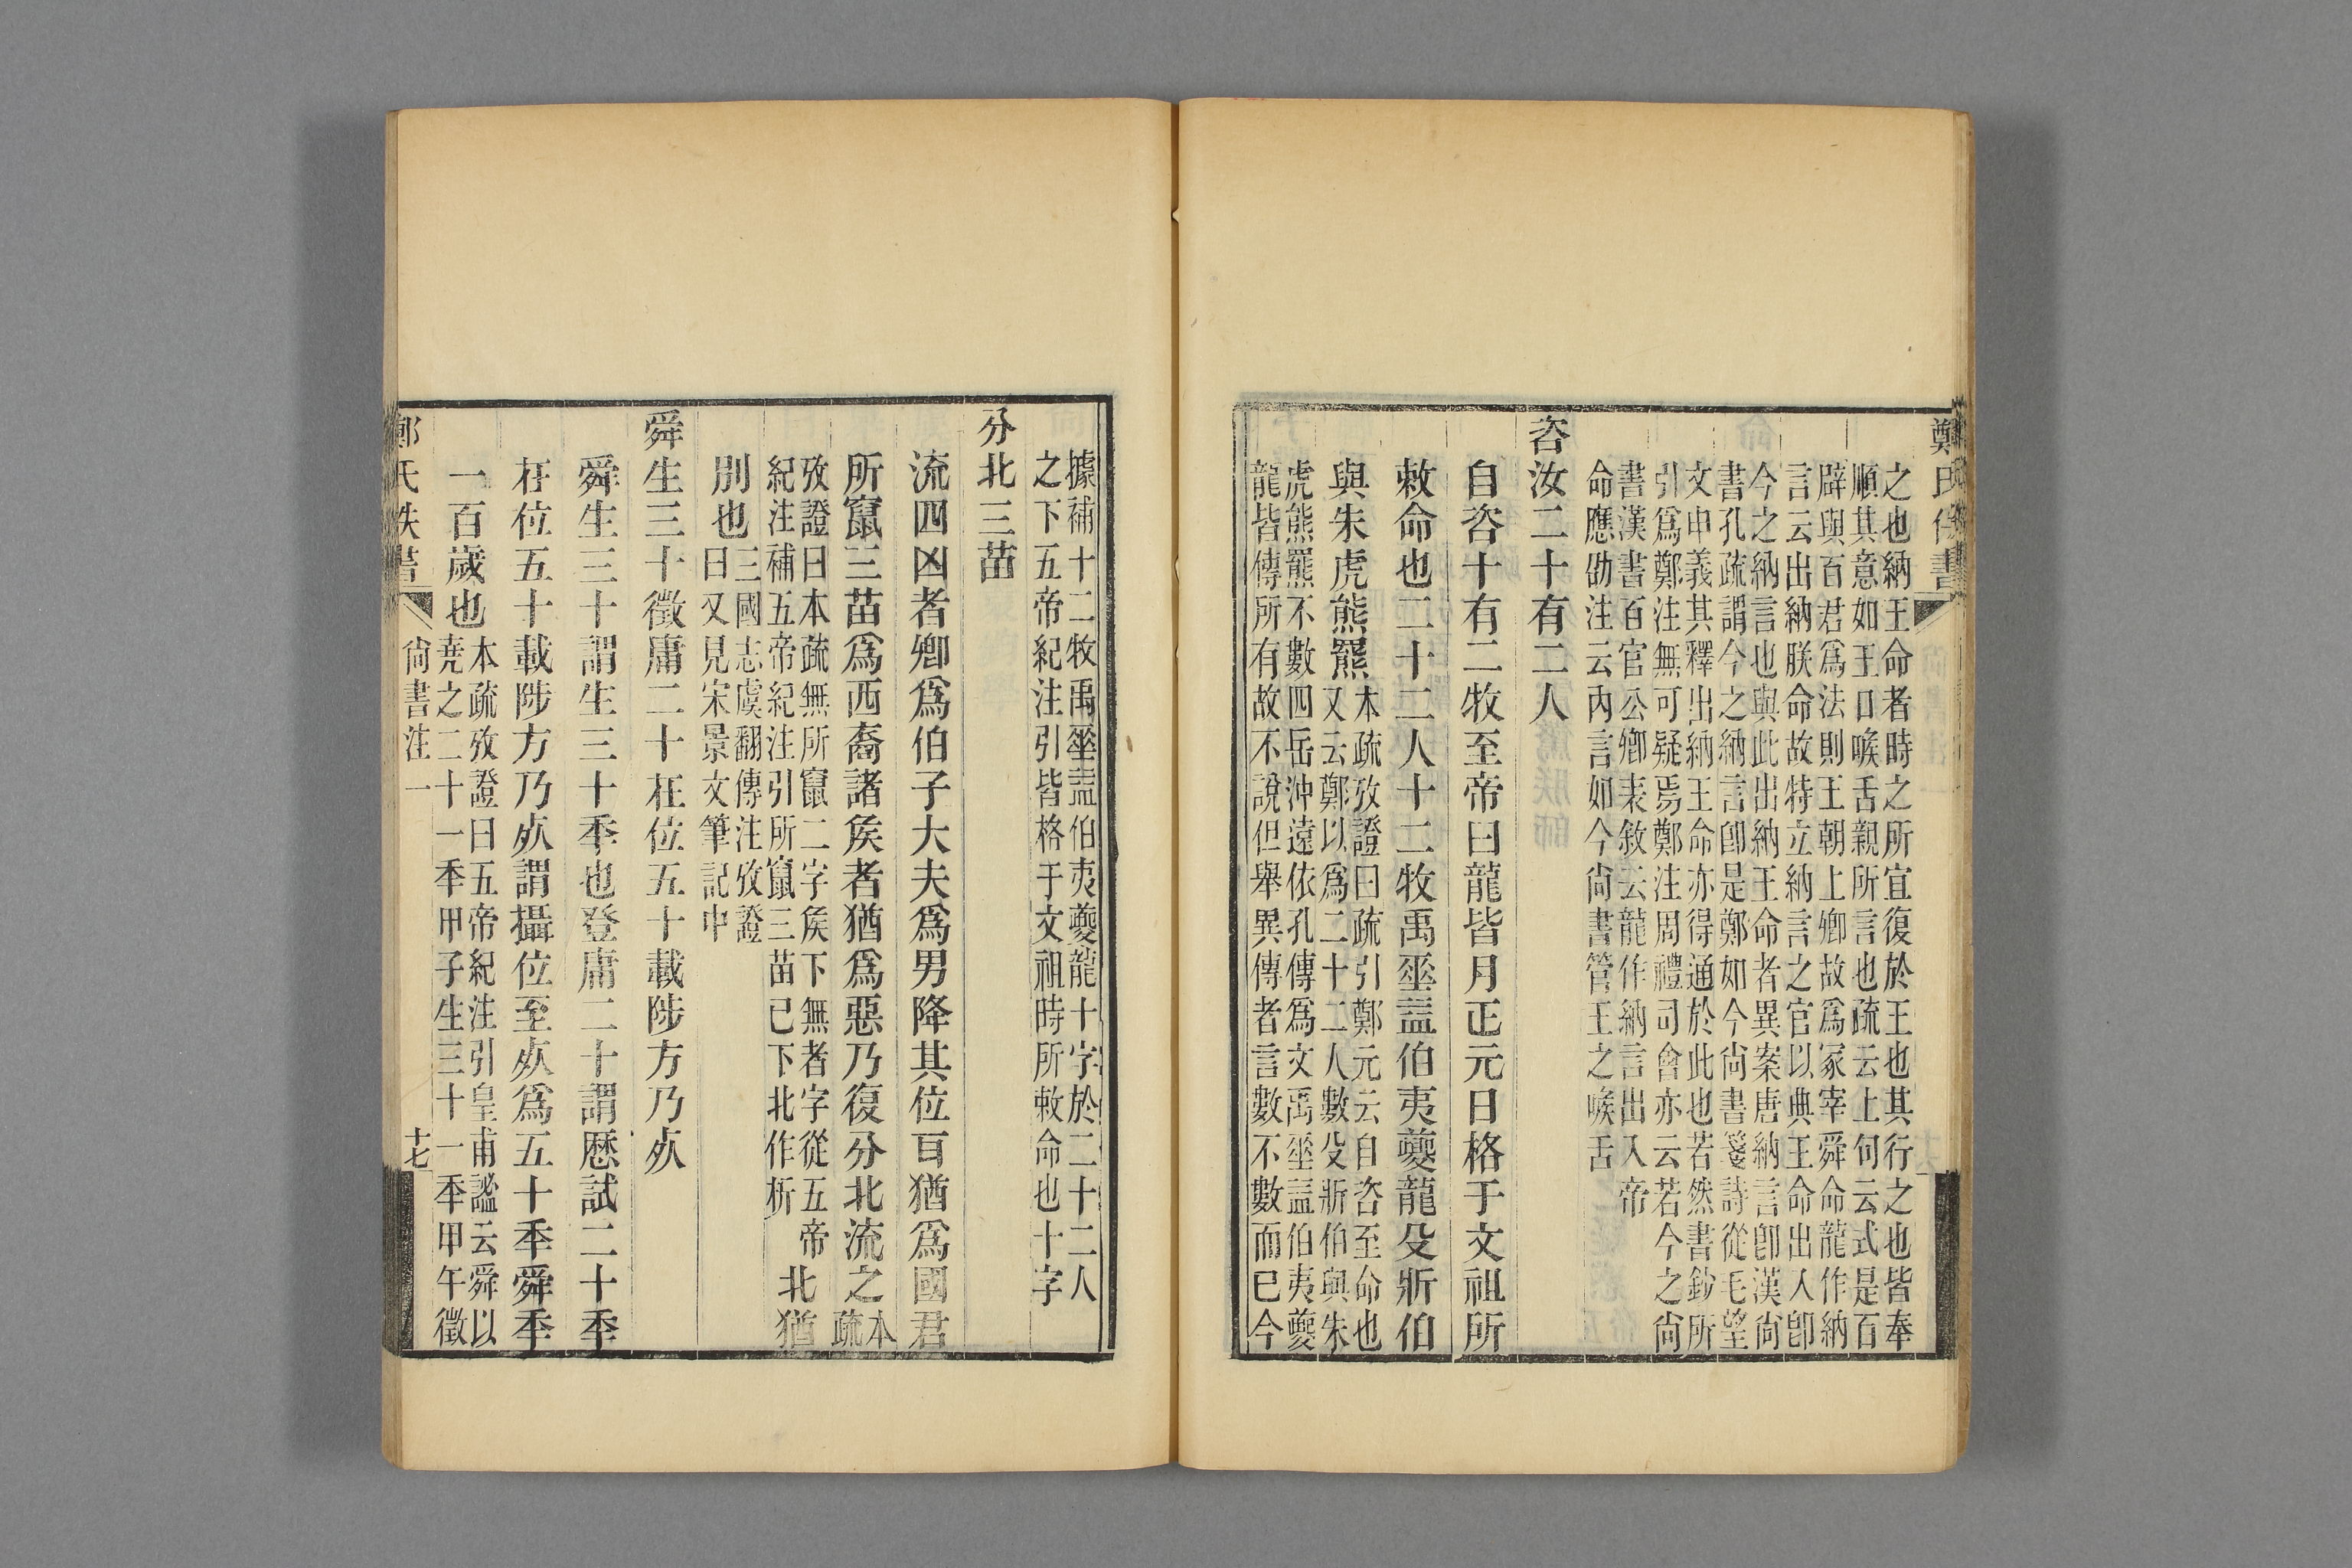 鄭氏佚書
之也納王命者時之所宜復於王也其行之也皆奉
順其意如王口喉舌親所言也疏云上句云式是百
辟與百君爲法則王朝上卿故爲冢宰舜命龍作納
言云出納朕命故特立納言之官以典王命出入卽
今之納言也與此出納王命者異案唐納言卽漢尙
書孔疏謂今之納言卽是鄭如今尙書箋詩從毛望
文申義其釋出納王命亦得通於此也若然書鈔所
引爲鄭注無可疑焉鄭注周禮司會亦云若今之尙
書漢書百官公卿表敘云龍作納言出入帝
命應劭注云內言如今尙書管王之喉舌
咨汝二十有二人
自咨十有二牧至帝曰龍皆月正元日格于文祖所
敕命也二十二人十二牧禹垂益伯夷夔龍殳斨伯
與朱虎熊羆
本疏攷證曰疏引鄭元云自咨至命也
又云鄭以爲二十二人數殳斨伯與朱
虎熊羆不數四岳沖遠依孔傳爲文禹垂益伯夷夔
龍皆傳所有故不說但舉異傳者言數不數而已今
據補十二牧禹垂益伯夷夔龍十字於二十二人
之下五帝紀注引皆格于文祖時所敕命也十字
分北三苗
流四凶者卿爲伯子大夫爲男降其位耳猶爲國君
所竄三苗爲西裔諸矦者猶爲惡乃復分北流之
本
疏
攷證曰本疏無所竄二字矦下無者字從五帝
紀注補五帝紀注引所竄三苗已下北作析
北猶
別也
三國志虞翻傳注攷證
曰又見宋景文筆記中
舜生三十徵庸二十在位五十載陟方乃死
舜生三十謂生三十年也登庸二十謂歷試二十年
在位五十載陟方乃死謂攝位至死爲五十年舜年
一百歲也
本疏攷證曰五帝紀注引皇甫謐云舜以
堯之二十一年甲子生三十一年甲午徵
鄭氏佚書
尙書注一
十七